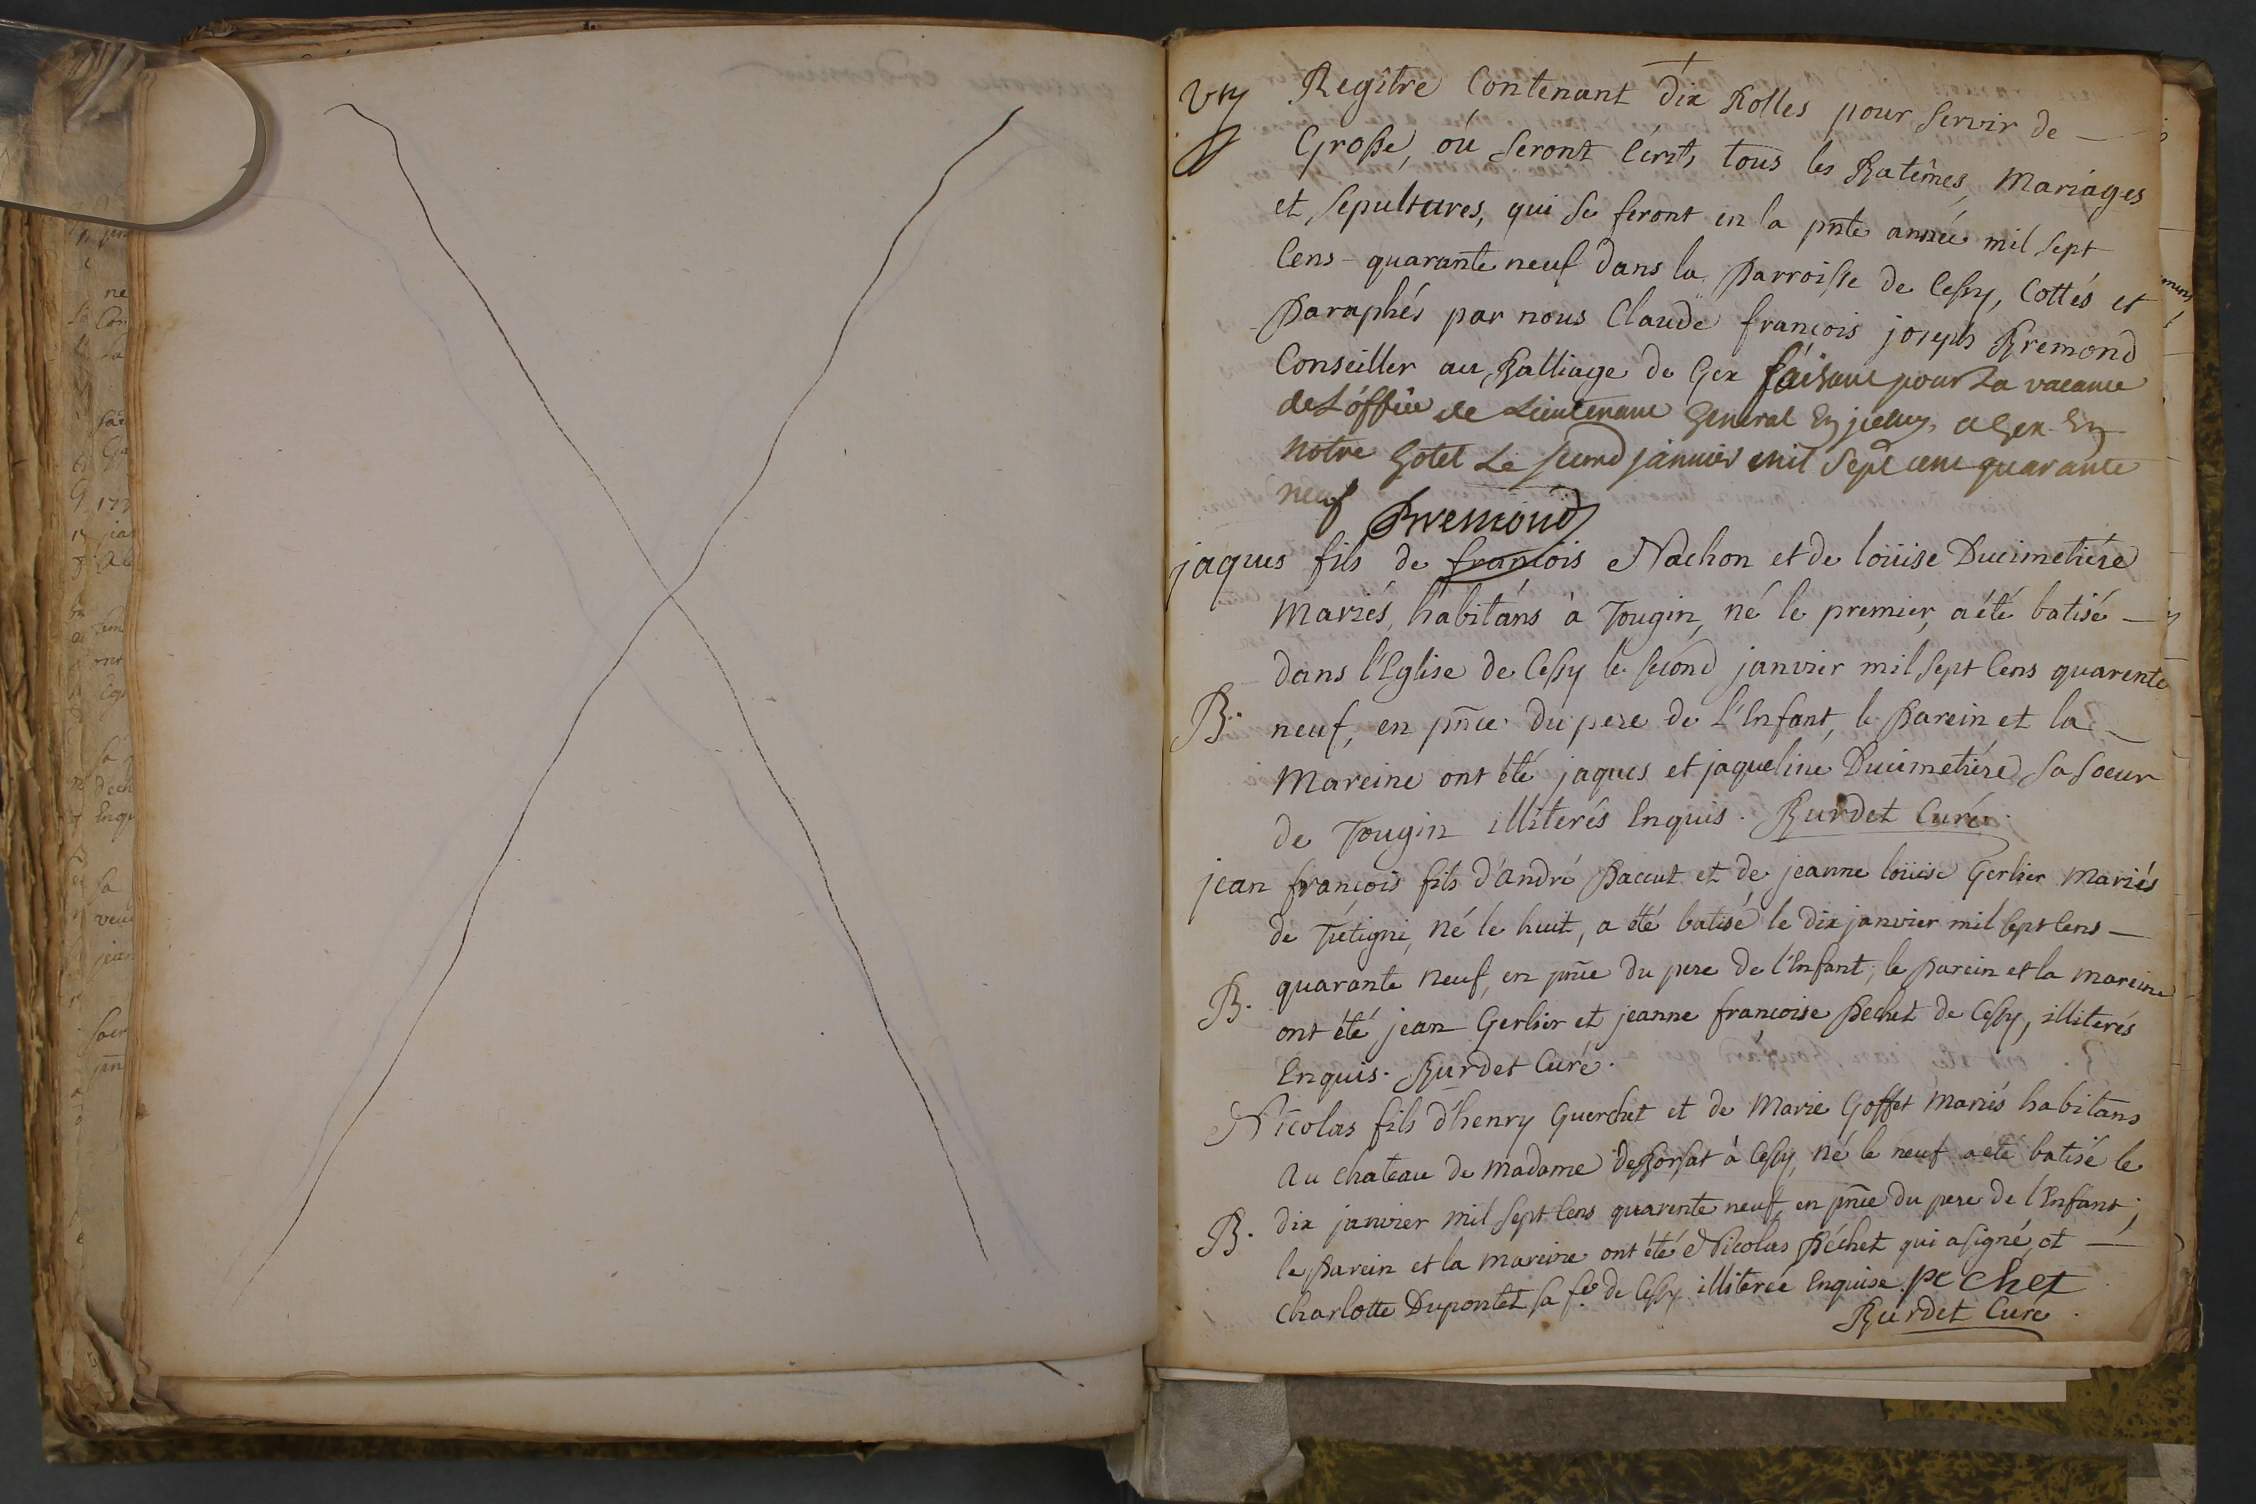 Vn
Regître Contenant dix Rolles pour servir de —
Grosse, où seront écrits tous les Batêmes, Mariages
et sepultures, qui se feront en la pñte année mil sept
Cens quarante neuf dans la Parroisse de Cessy, Cottés et
Paraphés par nous Claude françois joseph Bremond
Conseiller au Balliage de Gex faisant pour la vacance
de L'office de Lieutenant General En jceluy, a Gex En
notre hotel Le second janvier mil sept cent quarante
neuf Bremond
jaques fils de françois Nachon et de loüise Ducimetiére
Mariés, habitans à Tougin, né le premier, a été batisé —
dans l'Eglise de Cessy le second janvier mil sept Cens quarente
B. neuf, en pñce du pere de l'Enfant, le Parein et la —
Mareine ont été jaques et jaqueline Ducimetiére sa soeur
de Tougin illiterés Enquis. Burdet Curé.
jean françois fils d'andré Paccut et de jeanne loüise Gerlier Mariés
de Tutigni, Né le huit, a été batisé le dix janvier mil sept Cens —
B. quarante Neuf, en pñce du pere de l'Enfant; le Parein et la mareine
ont été jean Gerlier et jeanne françoise Pechet de Cessy, illiterés
Enquis. Burdet Curé.
Nicolas fils d'henry Guerchet et de Marie Goffet Mariés habitans
Au chateau de Madame de Borsat à Cessy, Né le neuf a eté batisé le
B. dix janvier Mil sept Cens quarente neuf, en pñce du pere de l'Enfant;
le Parein et la mareine ont été Nicolas Péchet qui a signé, et —
Charlotte Dupontet sa fe de Cessy illiterée Enquise. pechet
Burdet Curé.